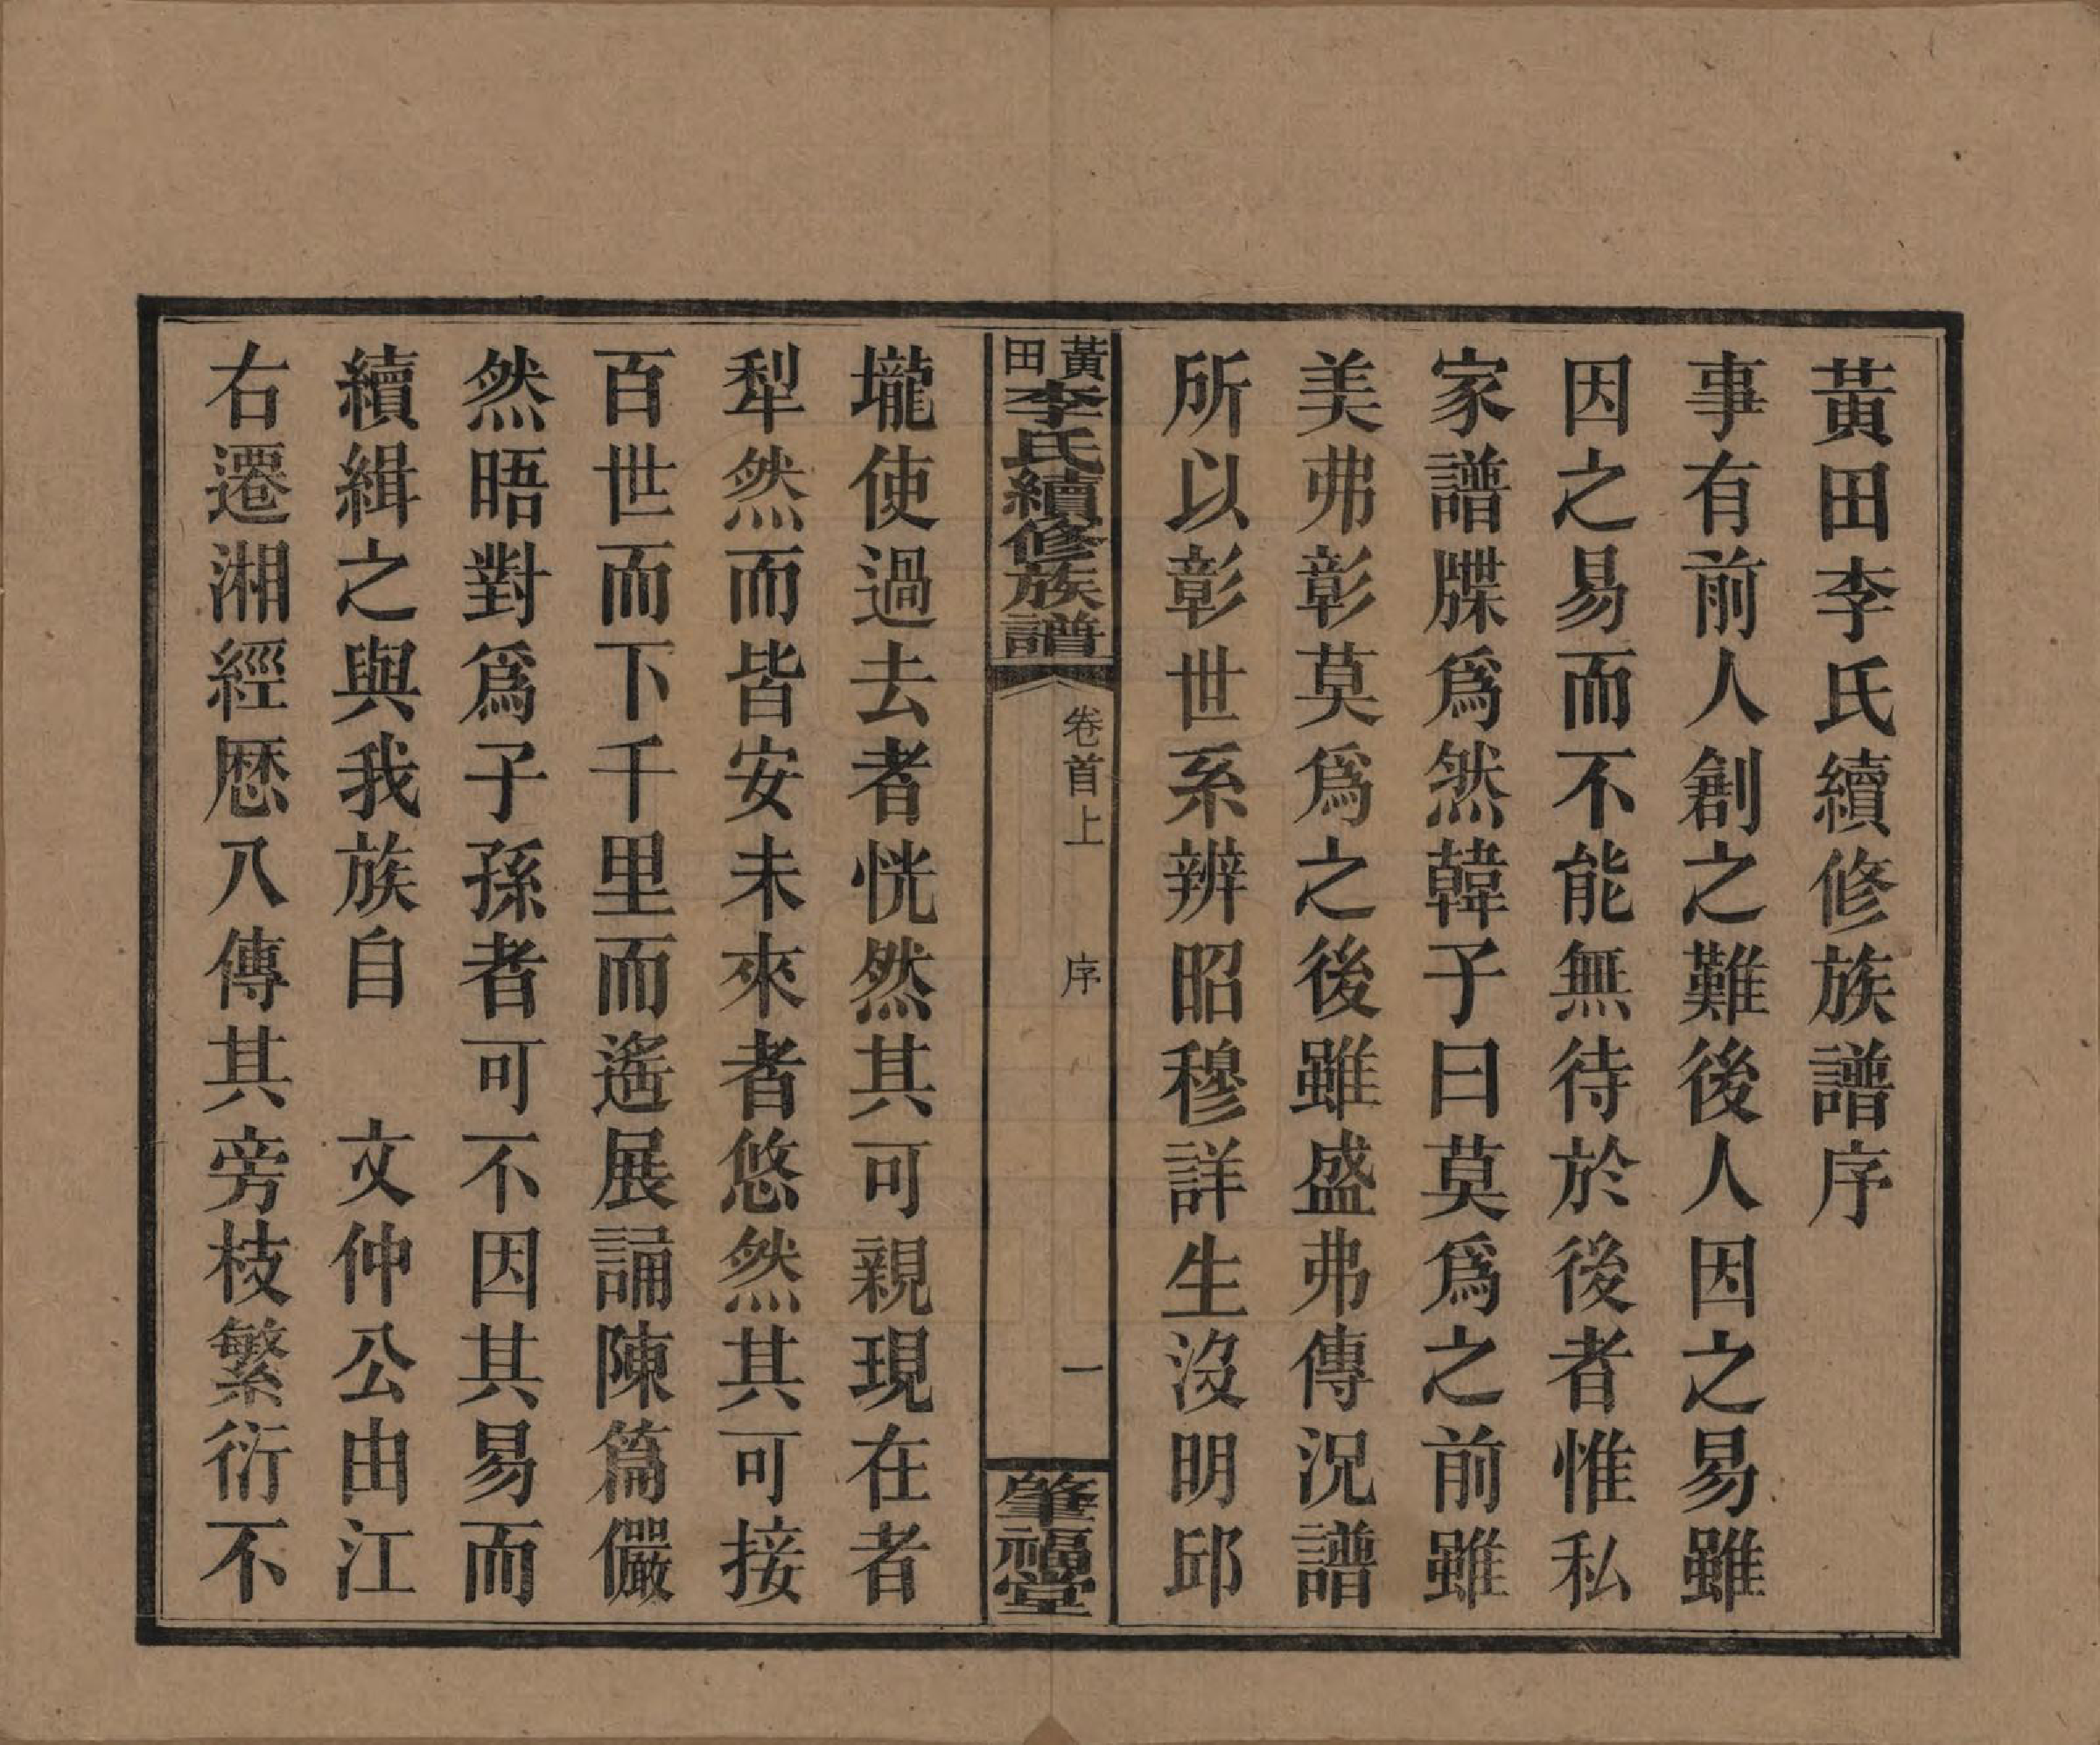 黃田李氏續修族譜序
事有前人創之難後人因之易雖
因之易而不能無待於後者惟私
家譜牒爲然韓子曰莫爲之前雖
美弗彰莫爲之後雖盛弗傳況譜
所以彰世系辨昭穆詳生沒明邱
黃田李氏續修族譜
卷首上 序 一
肇福堂
壠使過去者恍然其可親現在者
犁然而皆安未來者悠然其可接
百世而下千里而遙展誦陳篇儼
然晤對爲子孫者可不因其易而
續緝之與我族自 文仲公由江
右遷湘經厯八傳其旁枝繁衍不